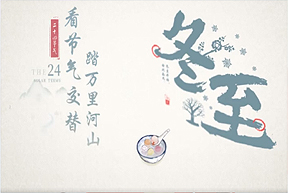 二十四节气
THE 24
SOLAR TERMS
看节气交替
踏万里河山
冬至